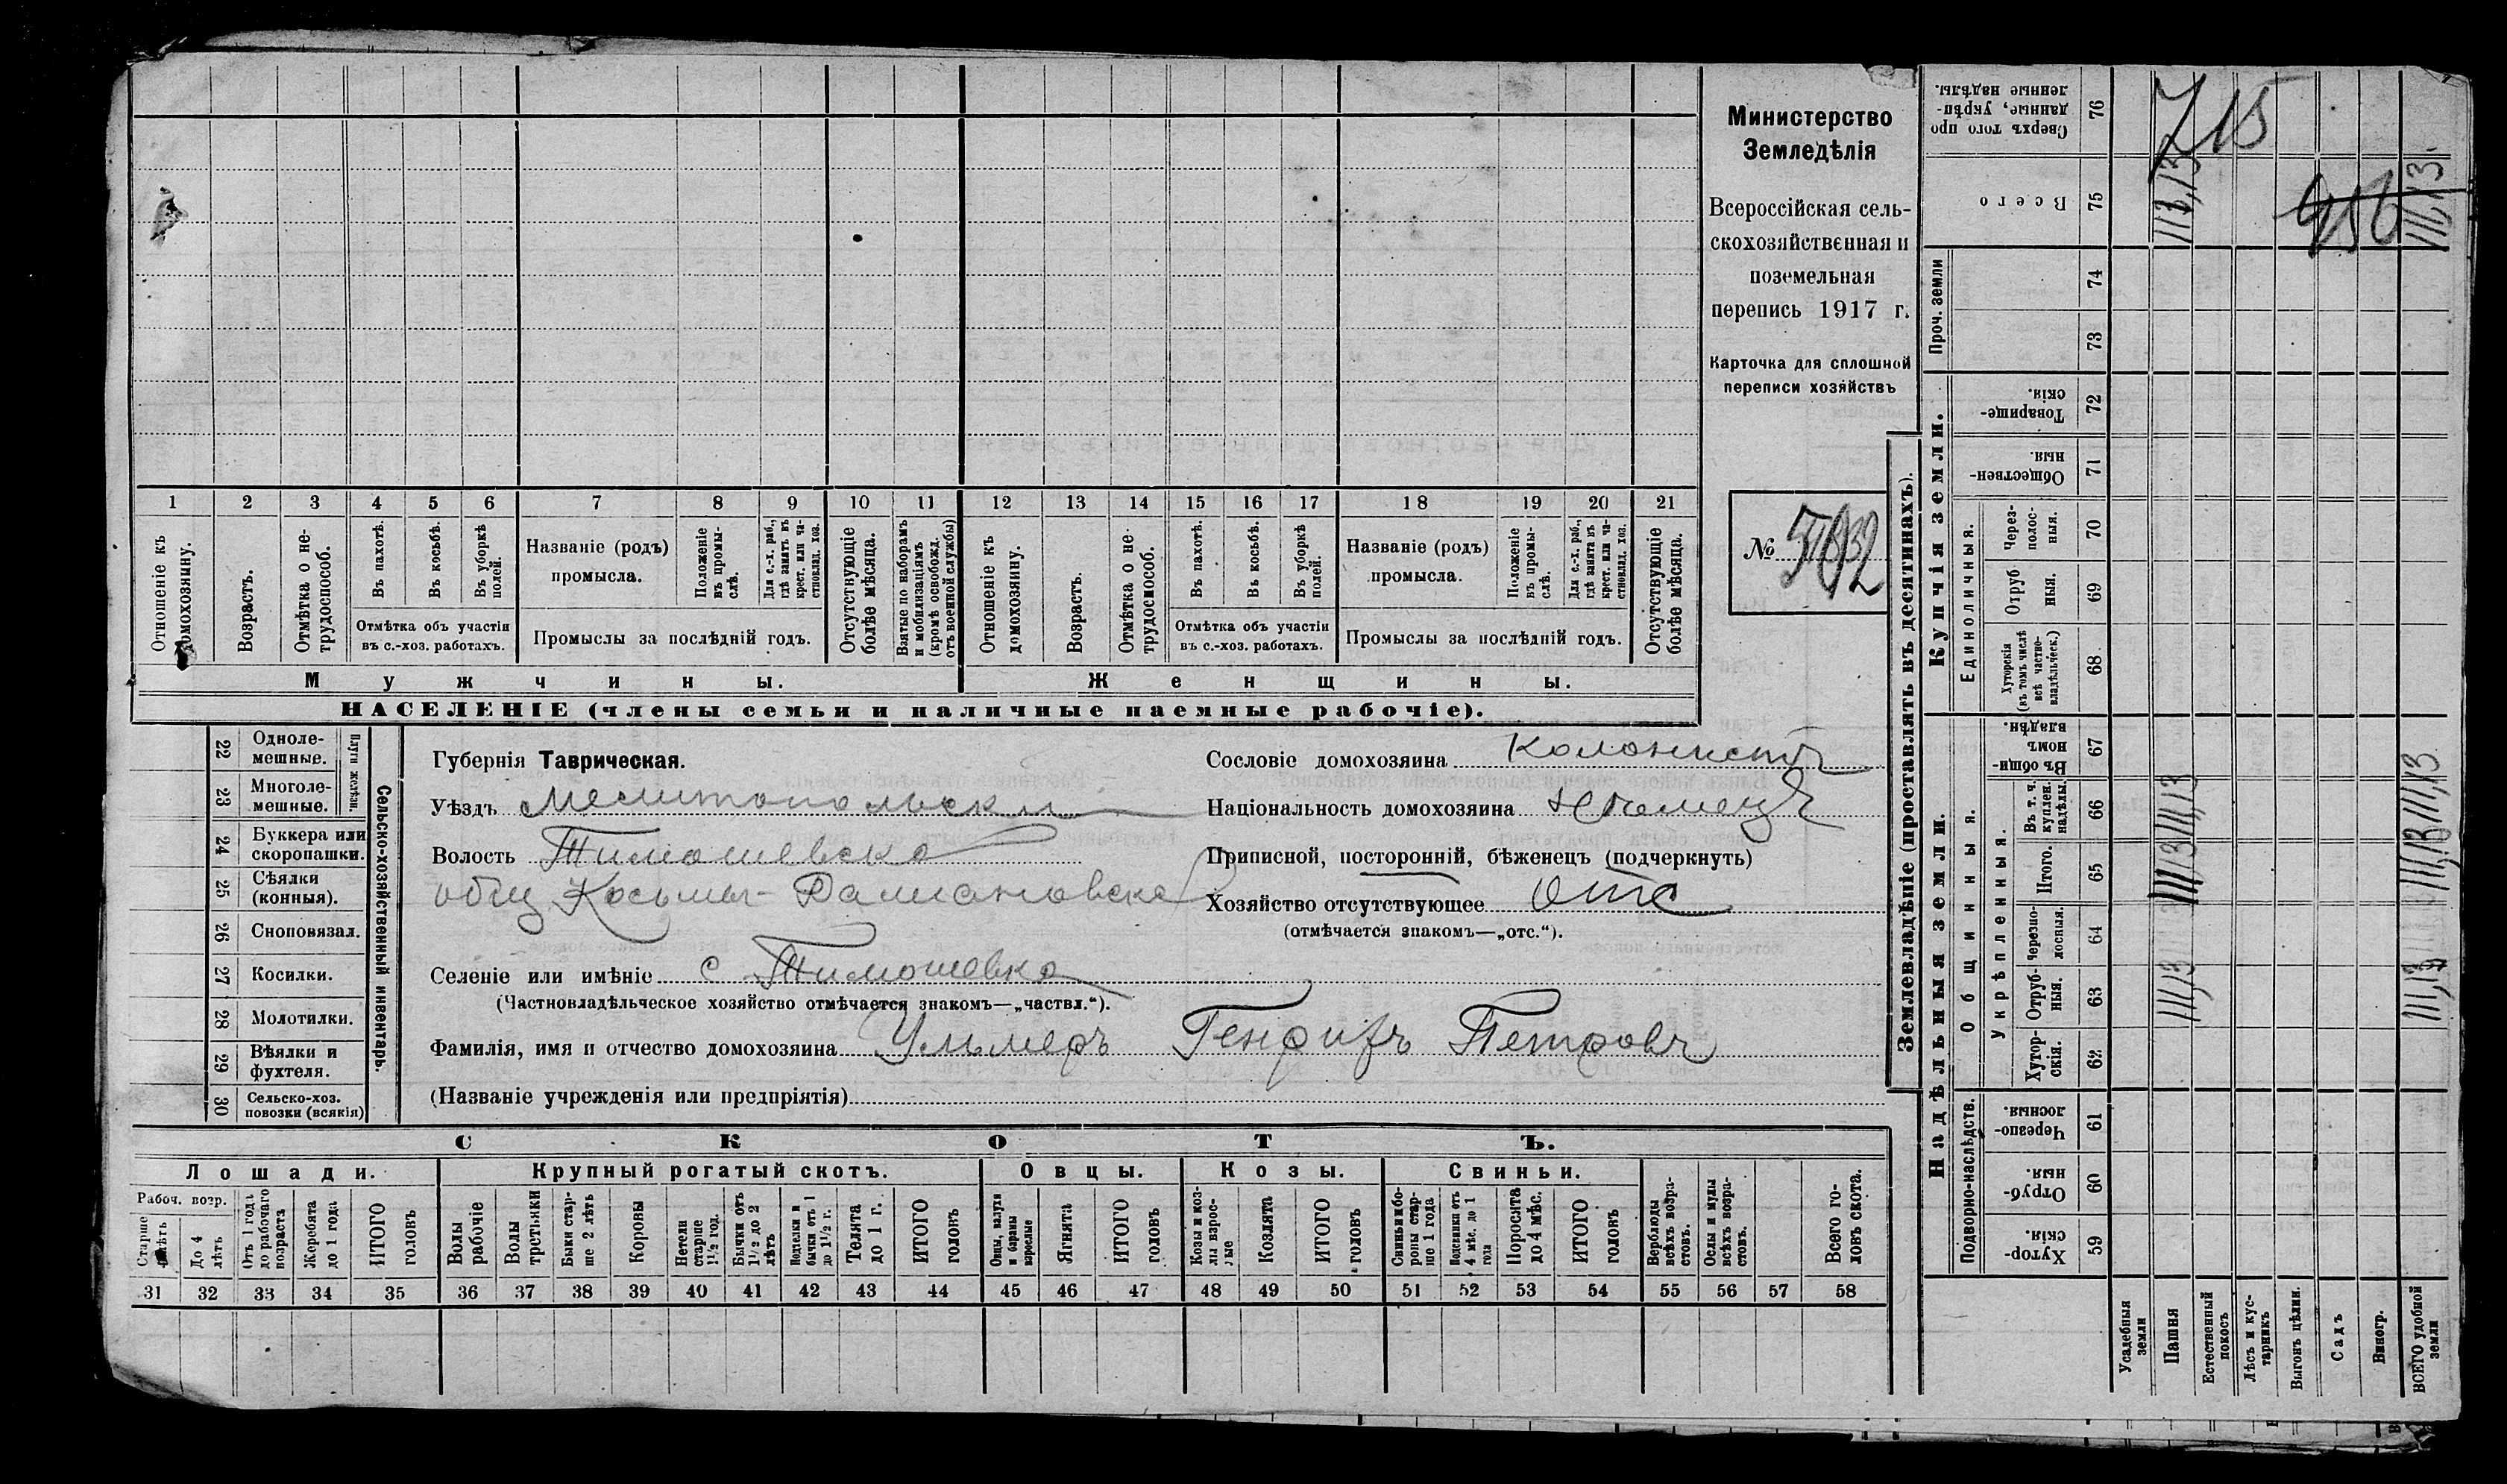 Министерство
Земледѣлія
Всероссійская сель-
скохозяйственная и
поземельная
перепись 1917 г.
Карточка для сплошной
переписи хозяйствъ
№
1 2 3 4 5 6 7 8 9 10 11 12 13 14 15 16 17 18 19 20 21
Отношеніе къ домохозяину.
Возрастъ.
Отмѣтка о не-трудоспособ.
Въ пахотѣ.
Въ косьбѣ.
Въ уборкѣ полей.
Отмѣтка объ участіи
въ с.-хоз. работахъ.
Названіе (родъ)
промысла.
Положеніе въ промы-слѣ.
Для с.-х. раб., гдѣ занятъ въ крест. или ча-стновлад. хоз.
Промыслы за послѣдній годъ.
Отсутствующіе болѣе мѣсяца.
Взятые по наборамъ и мобилизаціямъ (кромѣ освобожд. отъ военной службы)
Отношеніе къ домохозяину.
Возрастъ.
Отмѣтка о не-трудоспособ.
Въ пахотѣ.
Въ косьбѣ.
Въ уборкѣ полей.
Отмѣтка объ участіи
въ с.-хоз. работахъ.
Названіе (родъ)
промысла.
Положеніе въ промы-слѣ.
Для с.-х. раб., гдѣ занята въ крест. или ча-стновлад. хоз.
Промыслы за послѣдній годъ.
Отсутствующіе болѣе мѣсяца.
Мужчины.
Женщины.
НАСЕЛЕНІЕ (члены семьи и наличные наемные рабочіе).
Сельско-хозяйственный инвентарь.
Плуги желѣзн.
22 Однолемешные.
23 Многолемешные.
24 Буккера или скоропашки.
25 Сѣялки (конныя).
26 Сноповязал.
27 Косилки.
28 Молотилки.
29 Вѣялки и фухтеля.
30 Сельско-хоз. повозки (всякія)
Губернія Таврическая.
Уѣздъ Мелитопольски
Волость Тимошевско
общ Косьмы-Дамиановска
Селеніе или имѣніе с Тимошевка
(Частновладѣльческое хозяйство отмѣчается знакомъ—„частвл.“).
Фамилія, имя и отчество домохозяина Ульмеръ Генрихъ Петровъ
(Названіе учрежденія или предпріятія)
Сословіе домохозяина колонистъ
Національность домохозяина нѣмецъ
Приписной, посторонній, бѣженец (подчеркнуть)
Хозяйство отсутствующее отс
(отмѣчается знакомъ—„отс.“).
СКОТЪ.
Лошади. Крупный рогатый скотъ. Овцы. Козы. Свиньи.
Рабоч. возр.
Старше 4 лѣтъ
До 4 лѣтъ
Отъ 1 года до рабочаго возраста
Жеребята до 1 года
ИТОГО головъ
Волы рабочіе
Волы третьяки
Быки стар-ше 2 лѣтъ
Коровы
Нетели старше 1½ год.
Бычки отъ 1½ до 2 лѣтъ
Подтелки и бычки отъ 1 до 1½ г.
Телята до 1 г.
ИТОГО головъ
Овцы, валухи и бараны взрослые
Ягнята
ИТОГО головъ
Козы и коз-лы взрос-лые
Козлята
ИТОГО головъ
Свиньи и бо-ровы стар-ше 1 года
Подсвинки отъ 4 мѣс. до 1 года
Поросята до 4 мѣс.
ИТОГО головъ
Верблюды всѣхъ возра-стовъ.
Ослы и мулы всѣхъ возра-стовъ.
Всего го-ловъ скота.
31 32 33 34 35 36 37 38 39 40 41 42 43 44 45 46 47 48 49 50 51 52 53 54 55 56 57 58
Землевладѣніе (проставлять въ десятинахъ).
Надѣльныя земли.
Купчія земли.
Проч. земли
Подворно-наслѣдств.
Общинныя.
Укрѣпленныя.
Единоличныя.
Хутор-скія. 59
Отруб-ныя. 60
Черезпо-лосныя. 61
Хутор-скія. 62
Отруб-ныя. 63
Черезпо-лосныя. 64
Итого. 65
Въ т. ч. куплен. надѣлы. 66
Въ общи-номъ владѣн. 67
Хуторскія (въ томъ числѣ всѣ частно-владѣльческ.) 68
Отруб ныя. 69
Через-полос-ныя. 70
Обществен-ныя. 71
Товарище-скія. 72
73
74
Всего 75
Сверхъ того про данные, укрѣп-ленные надѣлы. 76
Усадебныя земли
Пашня
Естественный покосъ
Лѣсъ и кус-тарникъ
Выгонъ цѣлин.
Садъ
Виногр.
ВСЕГО удобной земли
715